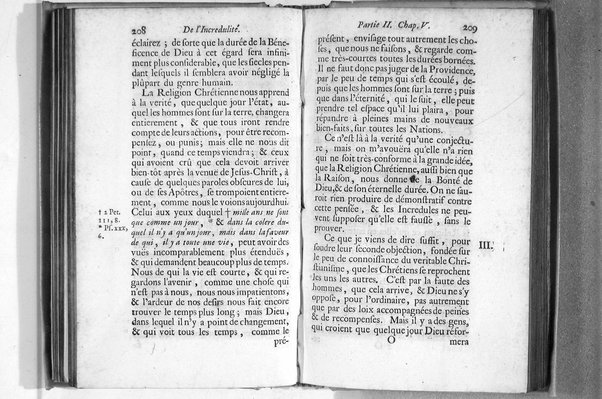 208 De l'Incredulité.
éclairez ; de sorte que la durée de la Béne-
ficence de Dieu à cet égard sera infini-
ment plus considerable, que les siecles pen-
dant lesquels il semblera avoir négligé la
plûpart du genre humain.
La Religion Chrétienne nous apprend
à la verité, que quelque jour l'état, au-
quel les hommes sont sur la terre, changera
entierement, & que tous iront rendre
compte de leurs actions, pour être recom-
pensez, ou punis; mais elle ne nous dit
point, quand ce temps viendra; & ceux
qui avoient crû que cela devoit arriver
bien-tôt après la venue de Jesus-Christ, à
cause de quelques paroles obscures de lui,
ou de ses Apôtres, se trompoient entiere-
ment, comme nous le voions aujourdhui.
Celui aux yeux duquel † mille ans ne sont
que comme un jour, * & dans la colere du-
quel il n'y a qu'un jour, mais dans la faveur
de qui, il y a toute une vie, peut avoir des
vûes incomparablement plus étendues,
& qui demandent beaucoup plus de temps.
Nous de qui la vie est courte, & qui re-
gardons l'avenir, comme une chose qui
n'est pas à nous, nous nous impatientons,
& l'ardeur de nos desirs nous fait encore
trouver le temps plus long; mais Dieu,
dans lequel il n'y a point de changement,
& qui voit tous les temps, comme le
pré-
† 2 Pet.
III, 8.
* Ps. xxx,
6.
Partie II. Chap. V. 209
présent, envisage tout autrement les cho-
ses, que nous ne faisons, & regarde com-
me très-courtes toutes les durées bornées.
Il ne faut donc pas juger de la Providence,
par le peu de temps qui s'est écoulé, de-
puis que les hommes sont sur la terre; puis
que dans l'éternité, qui le suit, elle peut
prendre tel espace qu'il lui plaira, pour
répandre à pleines mains de nouveaux
bien-faits, sur toutes les Nations.
Ce n'est là à la verité qu'une conjectu-
re, mais on m'avouera qu'elle n'a rien
qui ne soit très-conforme à la grande idée,
que la Religion Chrétienne, aussi bien que
la Raison, nous donne de la Bonté de
Dieu, & de son éternelle durée. On ne sau-
roit rien produire de démonstratif contre
cette pensée, & les Incredules ne peu-
vent supposer qu'elle est fausse, sans le
prouver.
Ce que je viens de dire suffit, pour
soudre leur seconde objection, fondée sur
le peu de connoissance du veritable Chri-
stianisme, que les Chrétiens se reprochent
les uns les autres. C'est par la faute des
hommes, que cela arrive, & Dieu ne s'y
oppose, pour l'ordinaire, pas autrement
que par des loix accompagnées de peines
& de recompenses. Mais il y a des gens,
qui croient que quelque jour Dieu réfor-
O mera
III.